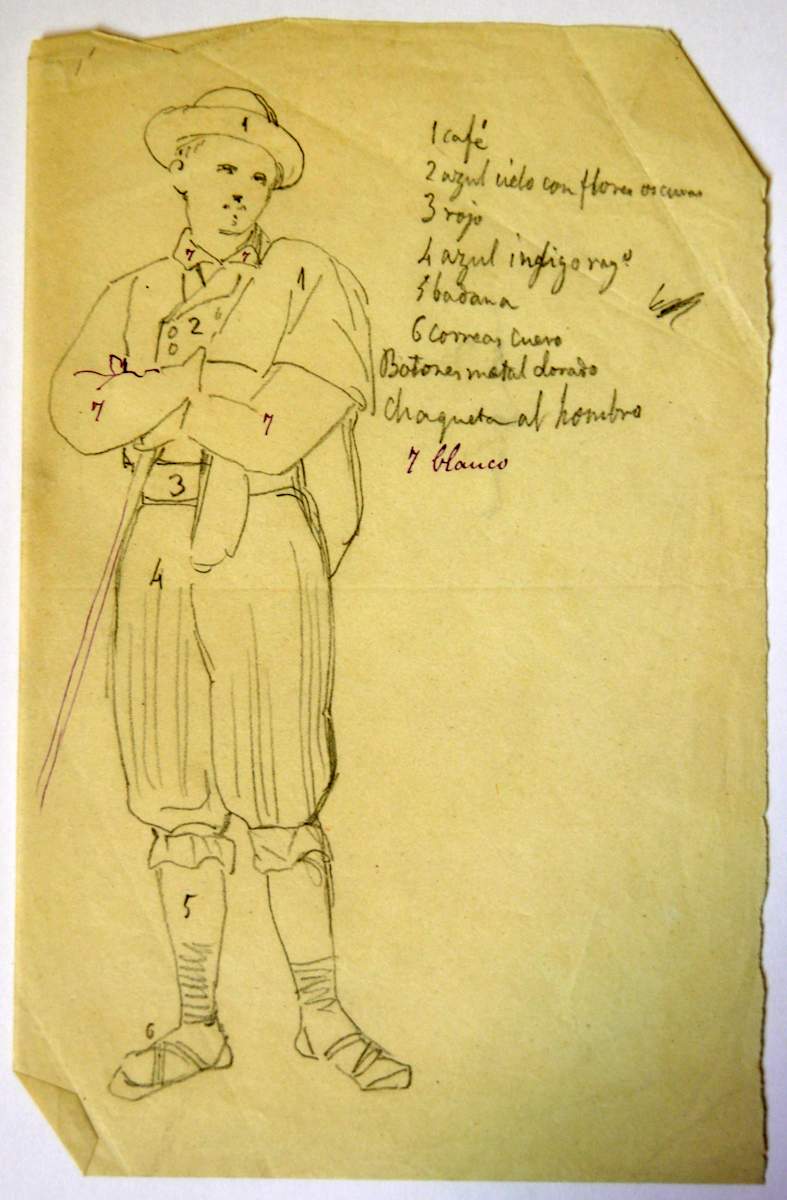 1
1 café
2 azul cielo con flores oscuras
3 rojo
7 7
4 azul indigo ray⁰
1
5 badana
2 6
6 correas cuero
Botones metal dorado
chaqueta al hombro
7 7
7 blanco
3
4
5
6